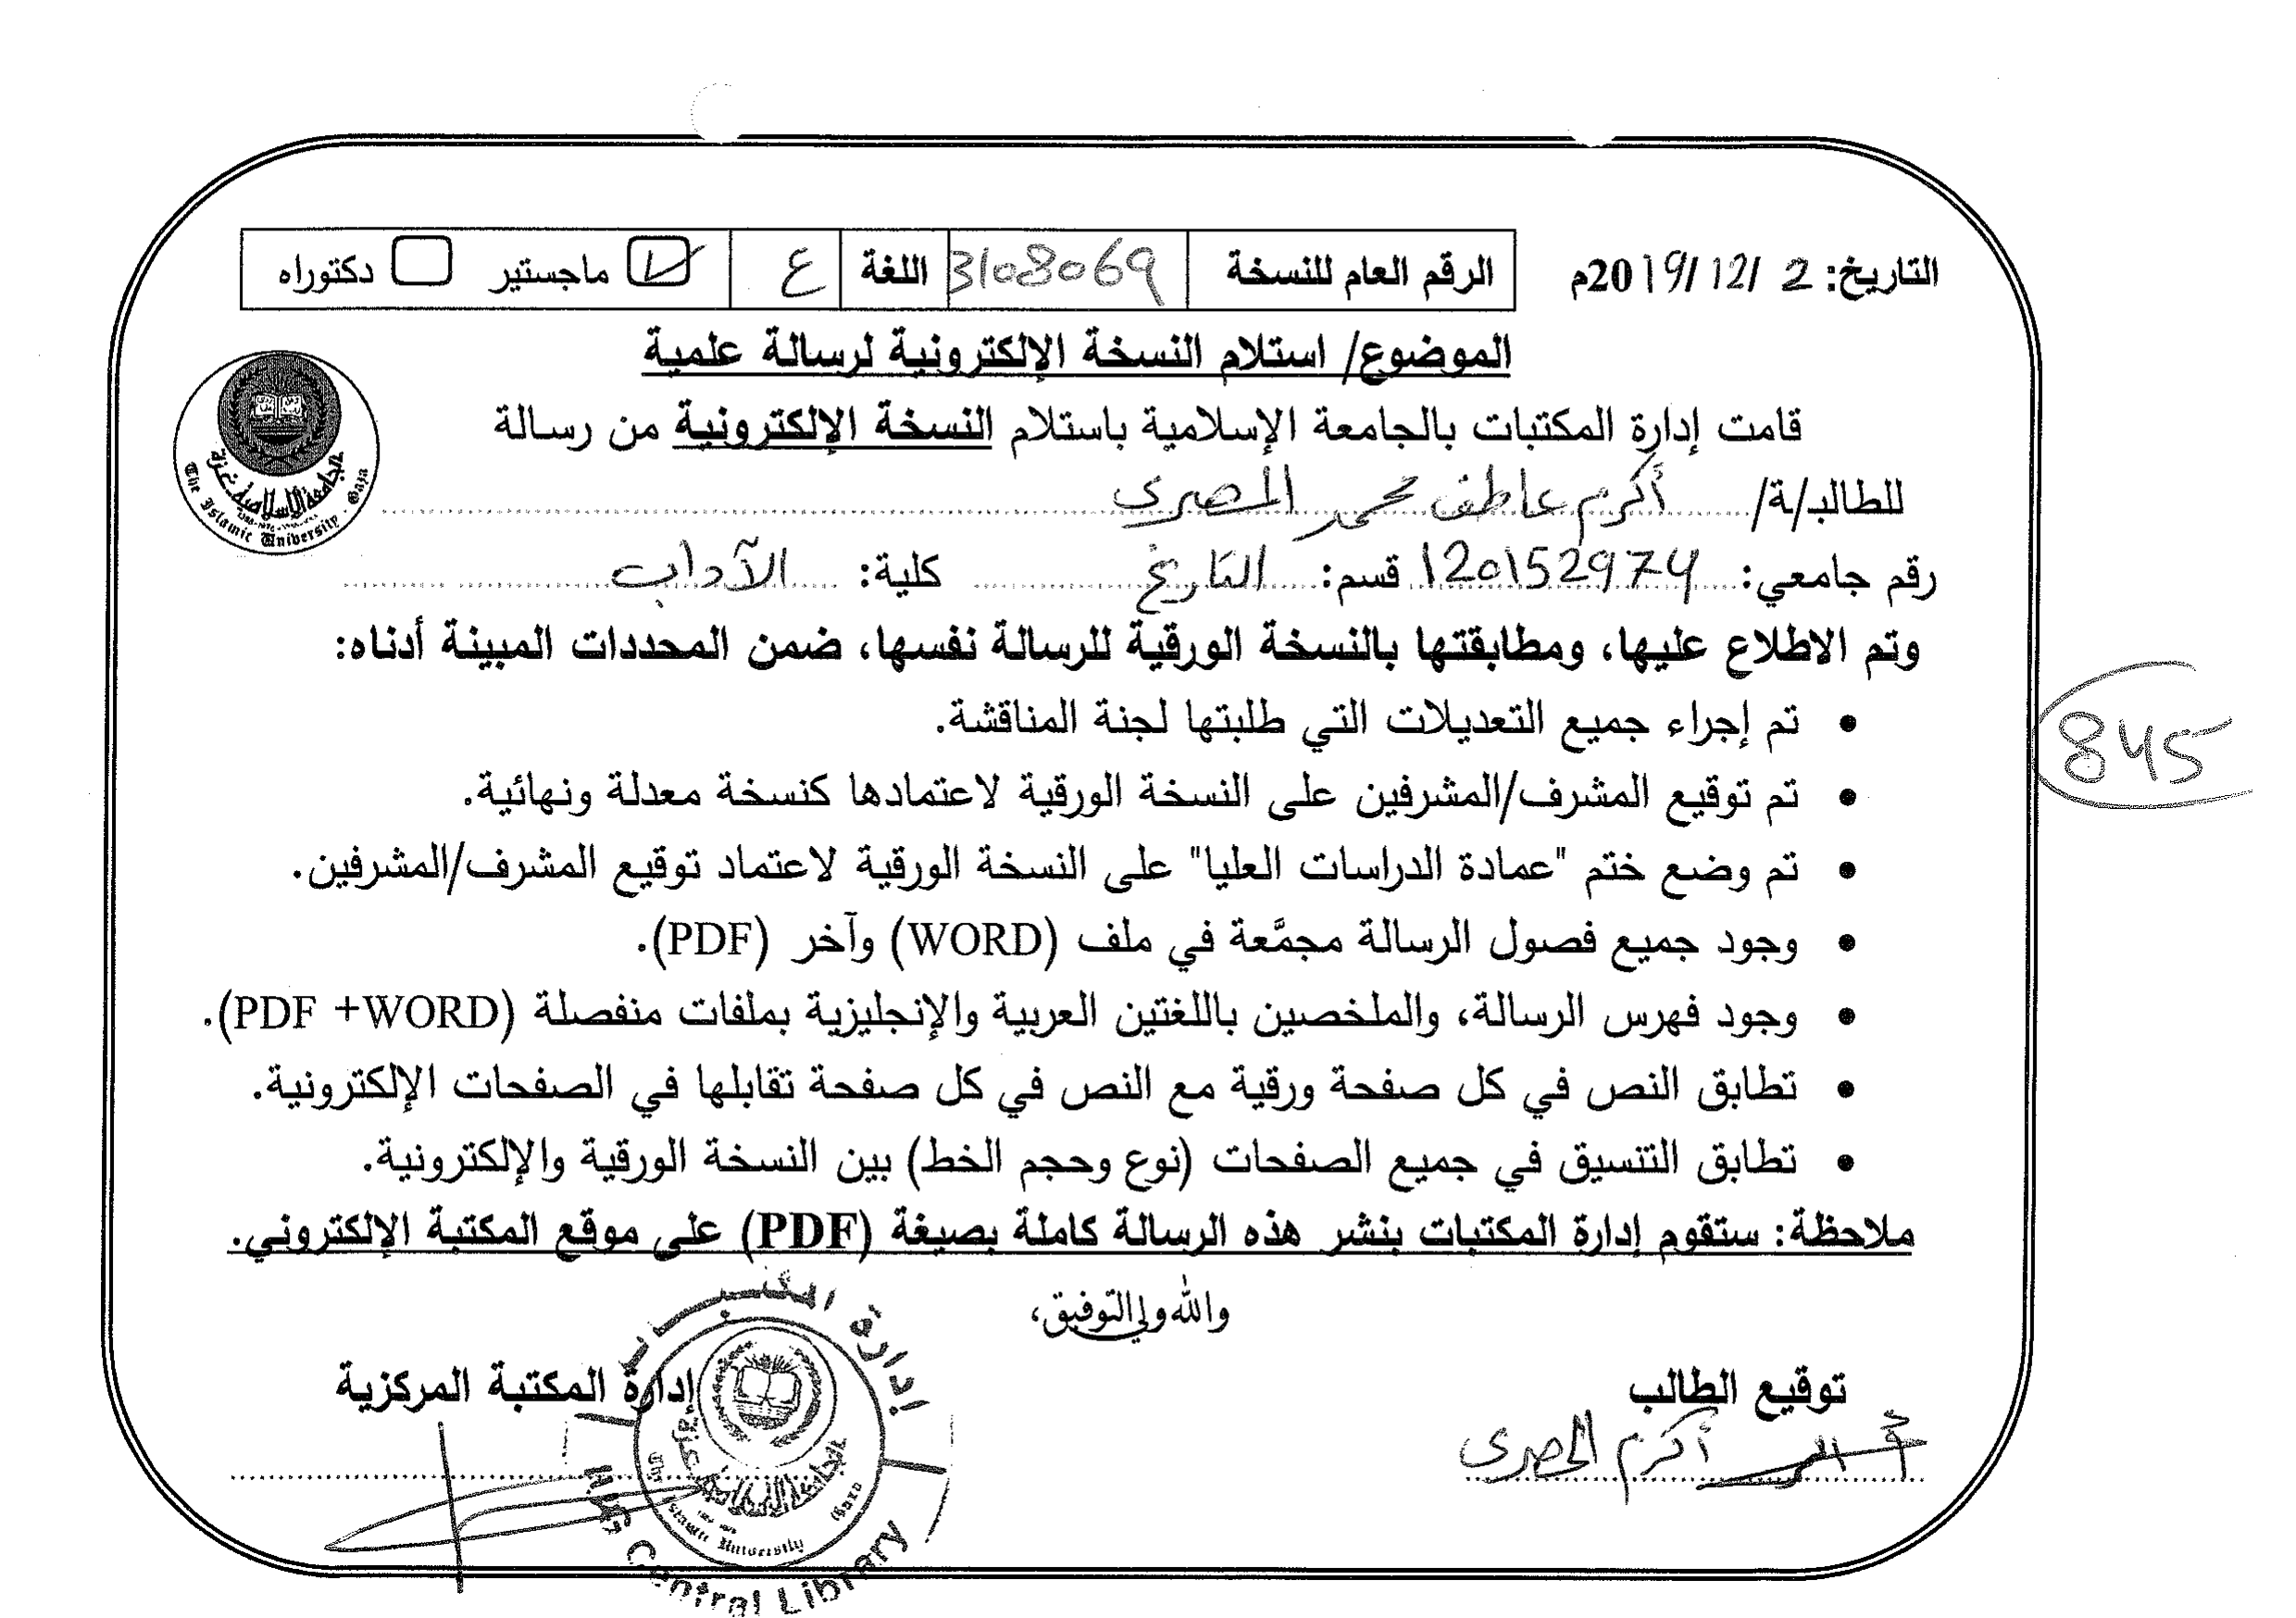 التاريخ: 2 /12 /2019م الرقم العام للنسخة 3108069 اللغة ع ماجستير دكتوراه
الموضوع/ استلام النسخة الإلكترونية لرسالة علمية
قامت إدارة المكتبات بالجامعة الإسلامية باستلام النسخة الإلكترونية من رسالة
للطالب/ة/ أكرم عاطف محمد المصري
رقم جامعي: 120152974 قسم: التاريخ كلية: الآداب
وتم الاطلاع عليها، ومطابقتها بالنسخة الورقية للرسالة نفسها، ضمن المحددات المبينة أدناه:
• تم إجراء جميع التعديلات التي طلبتها لجنة المناقشة.
845
• تم توقيع المشرف/المشرفين على النسخة الورقية لاعتمادها كنسخة معدلة ونهائية.
• تم وضع ختم "عمادة الدراسات العليا" على النسخة الورقية لاعتماد توقيع المشرف/المشرفين.
• وجود جميع فصول الرسالة مجمَّعة في ملف (WORD) وآخر (PDF).
• وجود فهرس الرسالة، والملخصين باللغتين العربية والإنجليزية بملفات منفصلة (PDF +WORD).
• تطابق النص في كل صفحة ورقية مع النص في كل صفحة تقابلها في الصفحات الإلكترونية.
• تطابق التنسيق في جميع الصفحات (نوع وحجم الخط) بين النسخة الورقية والإلكترونية.
ملاحظة: ستقوم إدارة المكتبات بنشر هذه الرسالة كاملة بصيغة (PDF) على موقع المكتبة الإلكتروني.
والله ولي التوفيق،
توقيع الطالب إدارة المكتبة المركزية
أكرم المصري
الجامعة الإسلامية غزة
The Islamic University - Gaza
إدارة المكتبات
الجامعة الإسلامية غزة
Islamic University Gaza
Central Library